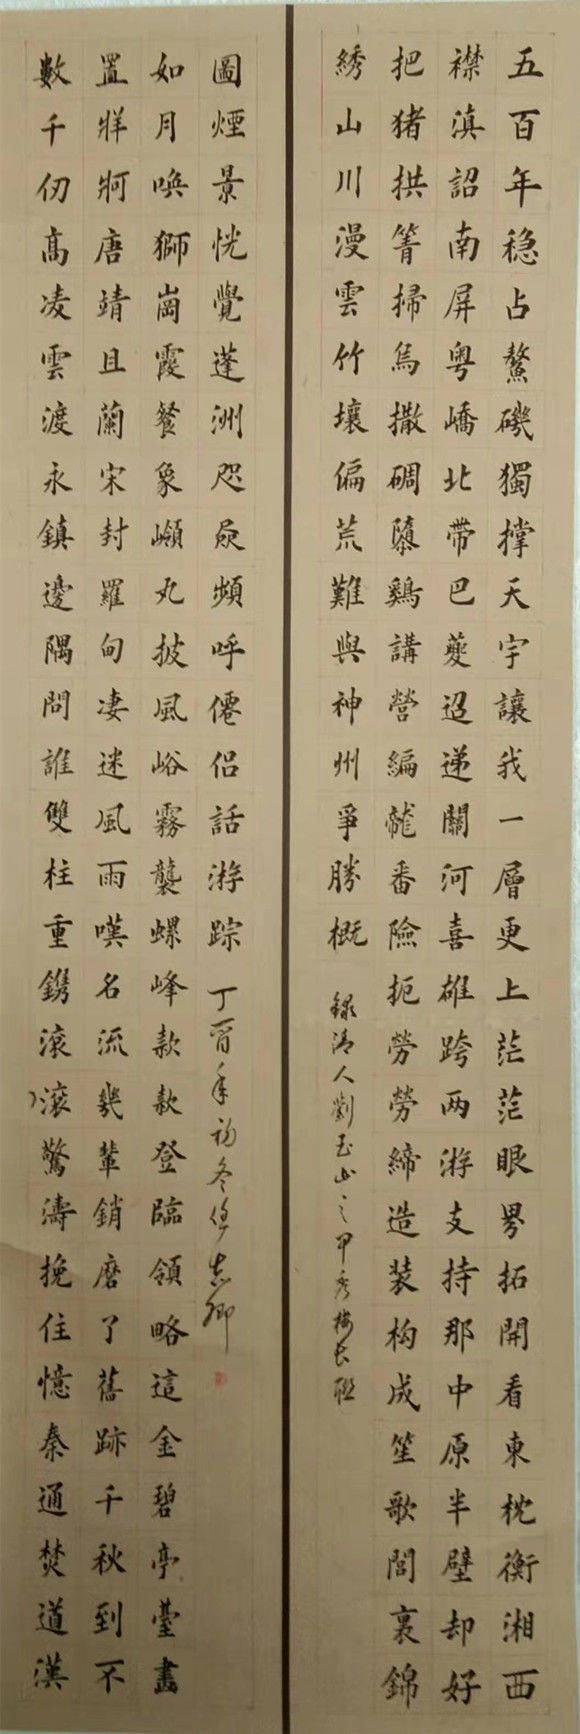 五百年稳占鰲磯獨撑天宇讓我一層更上茫茫眼界拓開看東枕衡湘西
襟滇詔南屏粤嶠北带巴夔迢递關河喜雄跨两游支持那中原半壁却好
把猪拱箐掃烏撒碉隳鷄講營編龍番險扼勞勞締造装构成笙歌閭裏錦
綉山川漫雲竹壤偏荒難與神州爭勝概 錄清人劉玉山之甲秀楼长联
數千仞高凌雲渡永鎮邊隅問誰雙柱重鐫滚滚驚濤挽住憶秦通焚道漢
置牂牁唐靖且蘭宋封羅甸凄迷風雨嘆名流幾輩銷磨了舊跡千秋到不
如月唤獅崗霞餐象嶺丸披風峪霧襲螺峰款款登臨領略這金碧亭臺畫
圖煙景恍覺蓬洲咫尺頻呼僊侣話游踪 丁酉年初冬